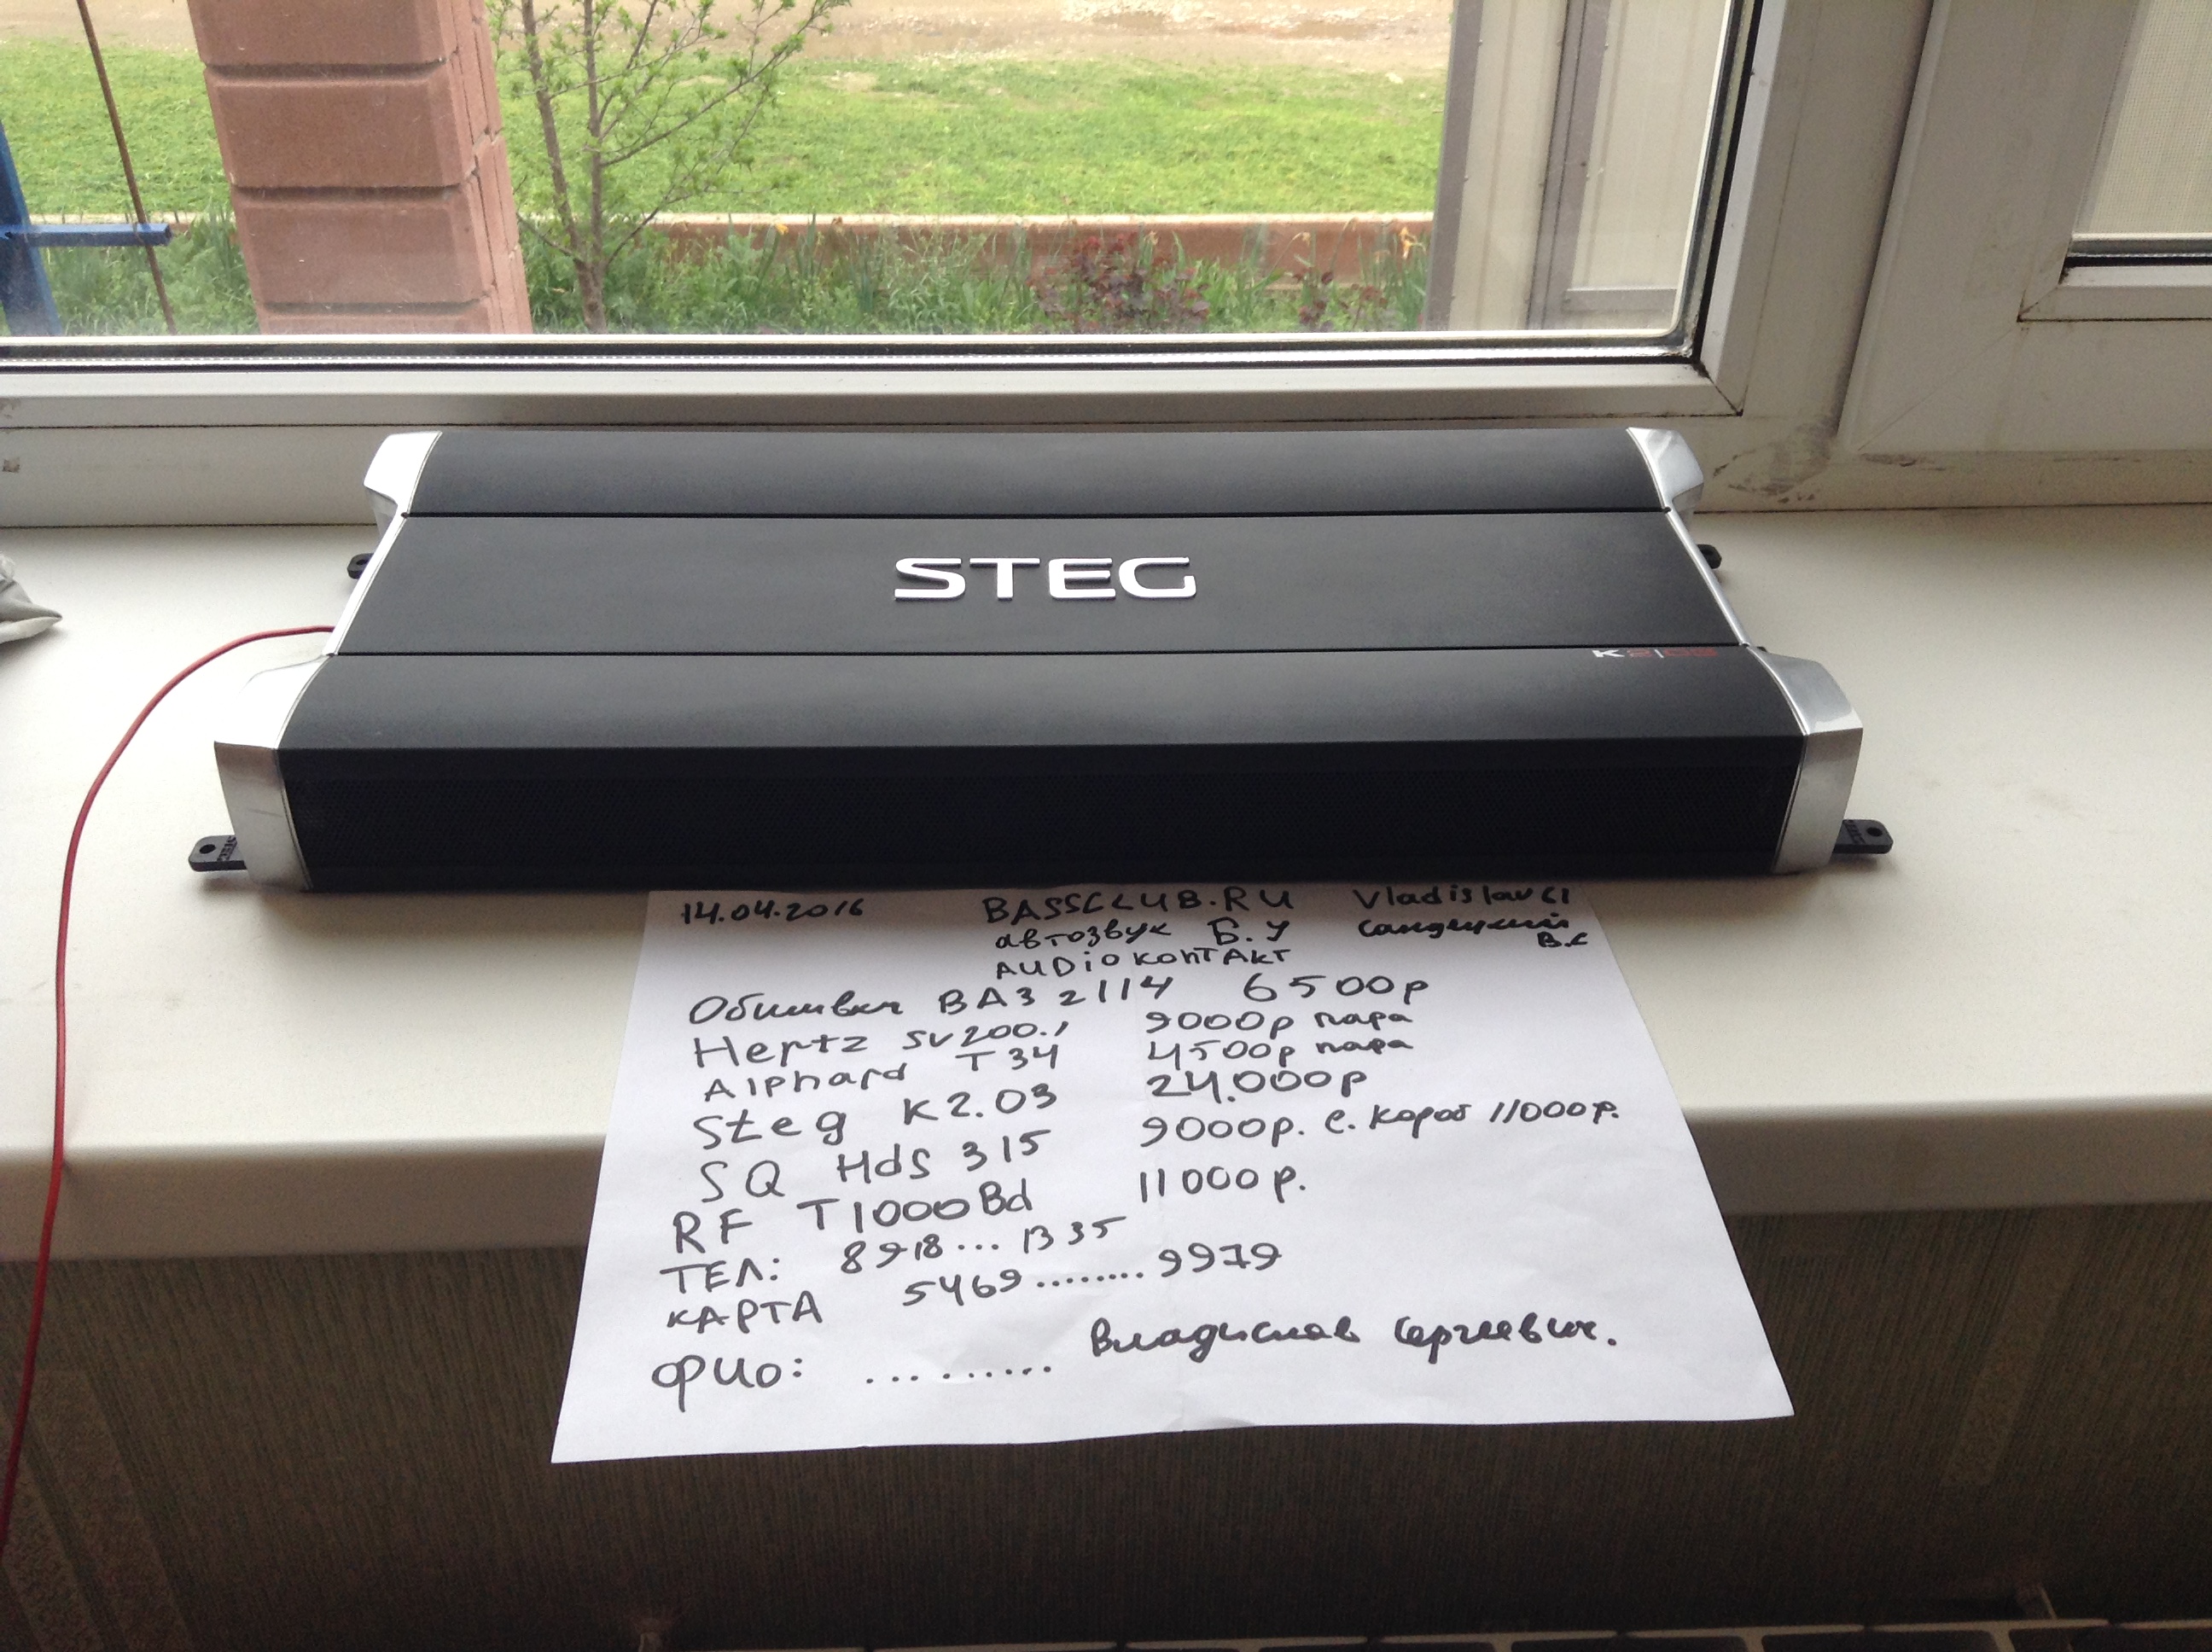 STEG
K2|03
14.04.2016 BASSCLUB.RU
автозвук Б.У
В.С
AUDiO КОНТАКТ
Обшивки ВАЗ 2114 6500р
Hertz SV200.1 9000р пара
Alphard T34 4500р пара
Steg K2.03 24.000р
SQ HdS 315 9000р. с. короб 11000р.
RF T1000Bd 11000р.
ТЕЛ: 8918... 1335
КАРТА 5469........ 9979
ФИО: .......... Владислав Сергеевич.